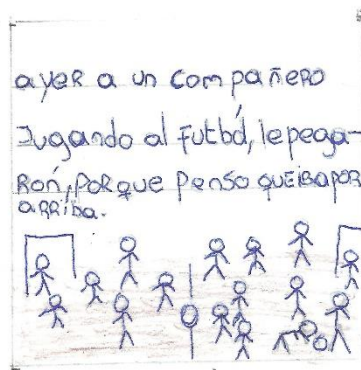 ayer a un compañero
Jugando al futból, le pega-
Ron, PoR que Penso queiba poR
aRRiba.